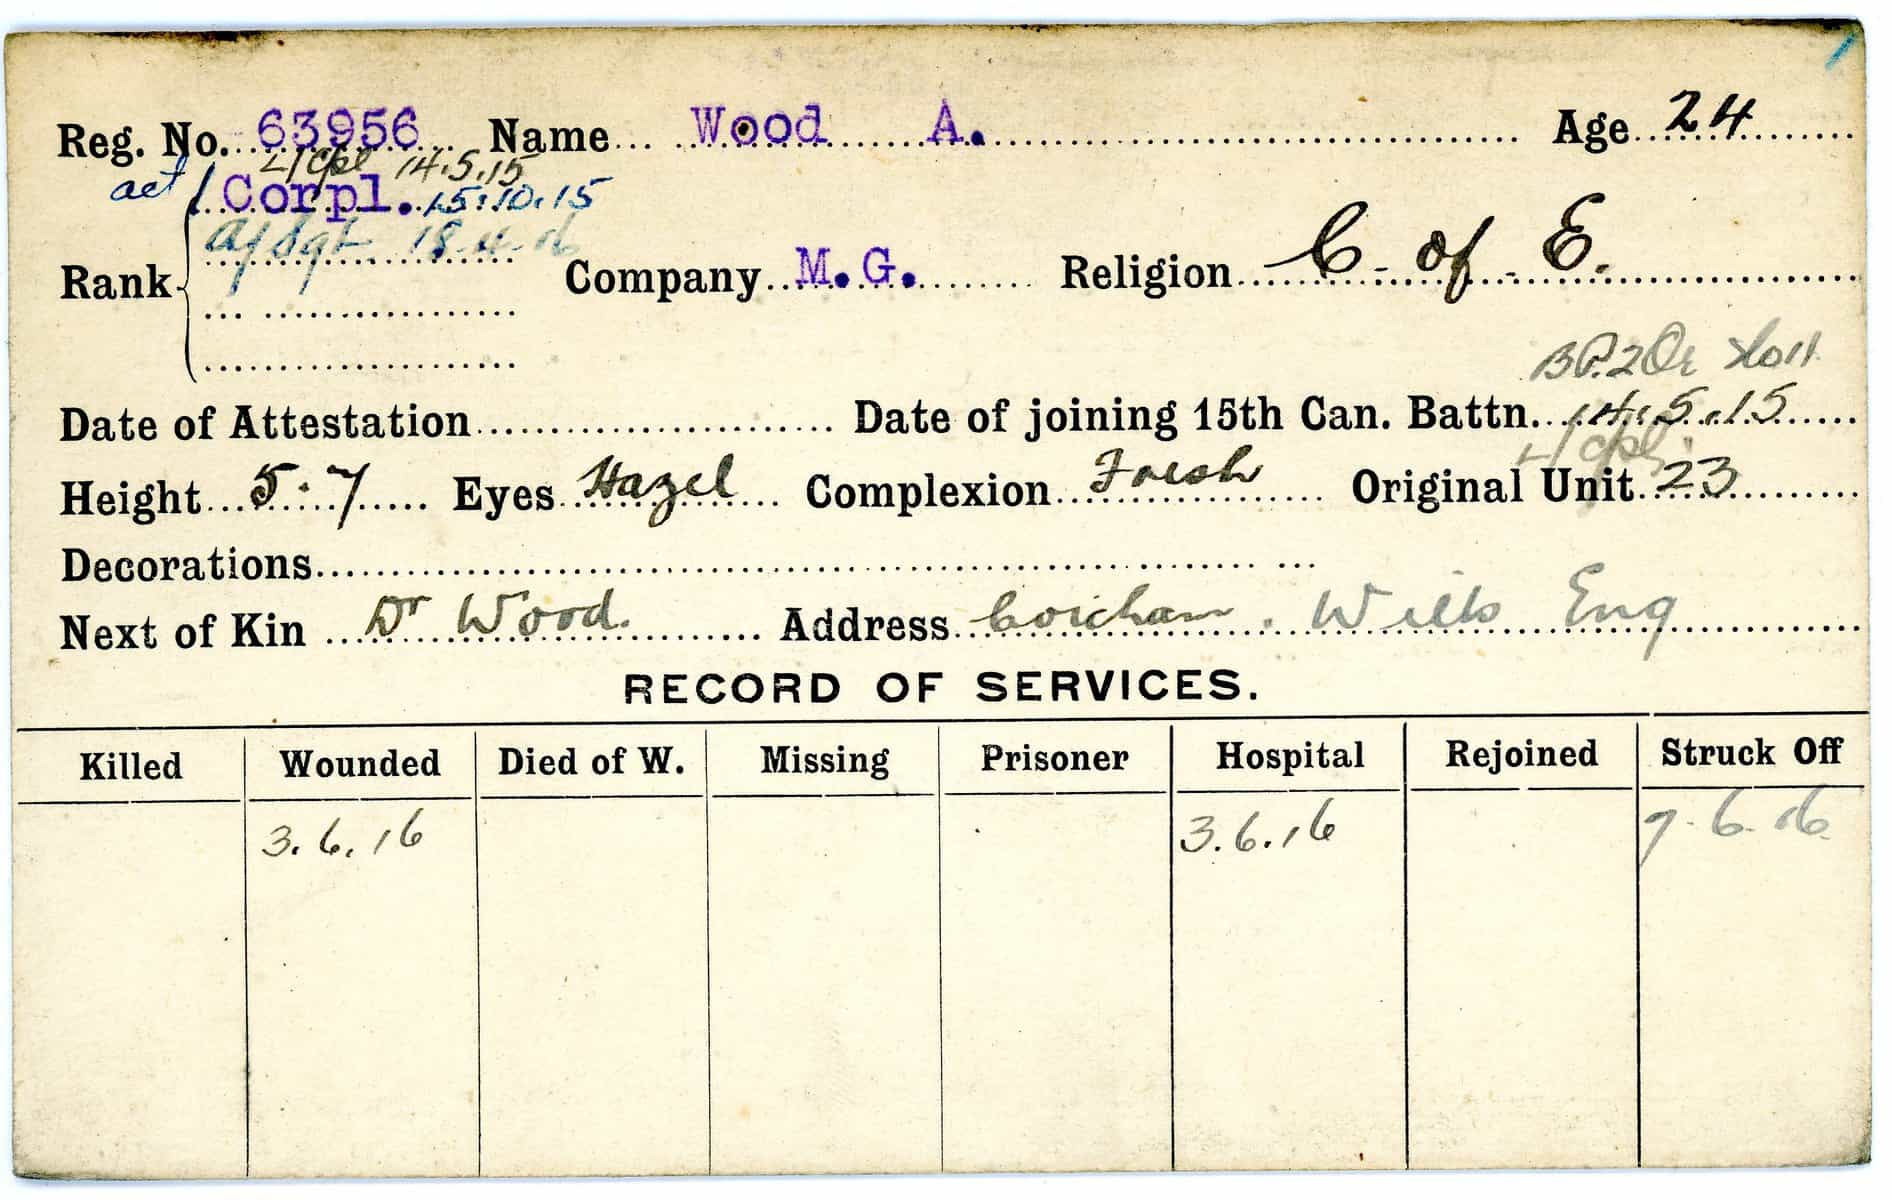 Reg. No. 63956 Name Wood A. Age 24
L/Cpl 14.5.15
act/ Corpl. 15.10.15
A/Sgt 18.4.16
Rank Company M.G. Religion C. of E.
Date of Attestation Date of joining 15th Can. Battn. 14.5.15
L/Cpl.
Height 5.7 Eyes Hazel Complexion Fresh Original Unit 23
Decorations
Next of Kin Dr Wood. Address Corsham. Wilts Eng
RECORD OF SERVICES.
Killed Wounded Died of W. Missing Prisoner Hospital Rejoined Struck Off
3.6.16 3.6.16 7.6.16